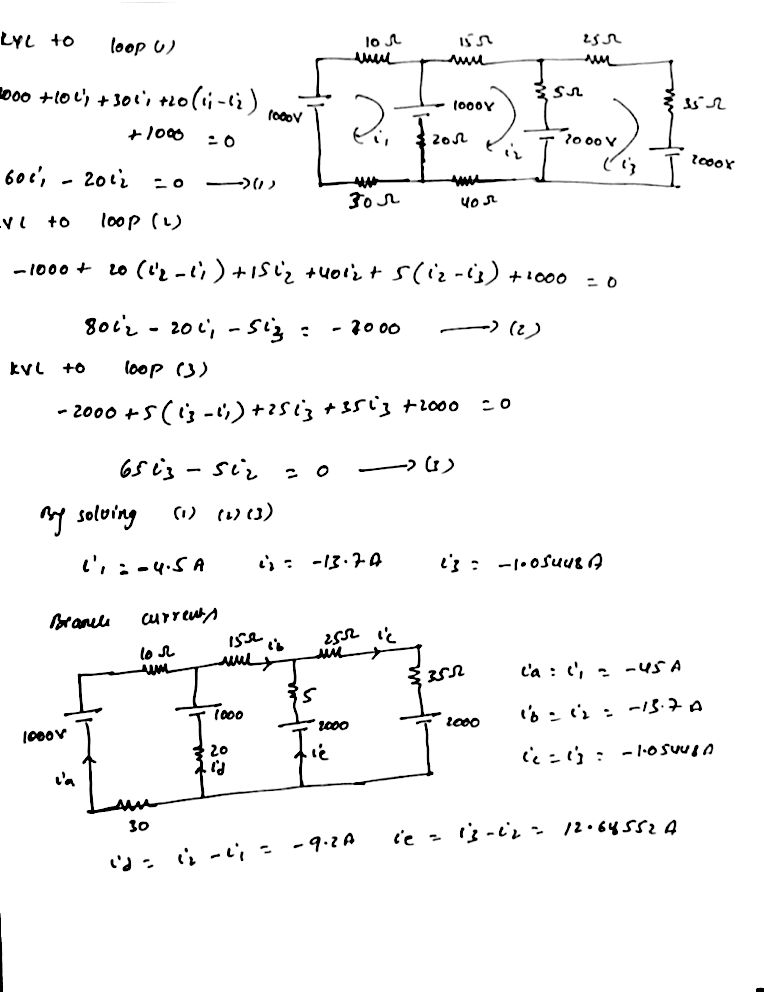 KVL to loop (1)
10 Ω 15 Ω 25 Ω
1000 + 10i₁ + 30i₁ + 20(i₁ - i₂)
+ 1000 = 0
1000V 1000V 5Ω 35 Ω
i₁ 20Ω i₂ 2000V i₃ 2000V
30 Ω 40 Ω
60i₁ - 20i₂ = 0 → (1)
KVL to loop (2)
-1000 + 20 (i₂ - i₁) + 15i₂ + 40i₂ + 5(i₂ - i₃) + 2000 = 0
80i₂ - 20i₁ - 5i₃ = - 1000 → (2)
KVL to loop (3)
- 2000 + 5(i₃ - i₁) + 25i₃ + 35i₃ + 2000 = 0
65i₃ - 5i₂ = 0 → (3)
By solving (1) (2) (3)
i₁ = -4.5 A i₂ = -13.7A i₃ = -1.05448A
Branch currents
10 Ω 15Ω ib 25Ω ic
35Ω
1000V 1000 5 2000 2000
ia 20 id ie
30
ia = i₁ = -45 A
ib = i₂ = -13.7 A
ic = i₃ = -1.05448A
id = i₂ - i₁ = -9.2A ie = i₃ - i₂ = 12.64552 A